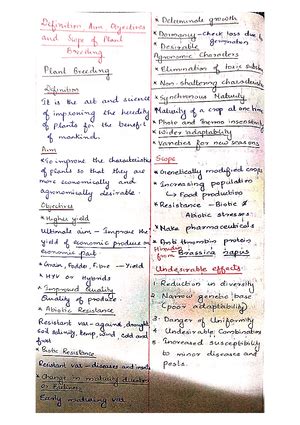 Definition Aim Objectives
and Scope of Plant
Breeding
Plant Breeding
Definition
It is the art and science
of improving the heredity
of Plants for the benefit
of mankind.
Aim
*To improve the characteristics
of plants so that they are
more economically and
agronomically desirable.
Objectives
* Higher yield
Ultimate aim - Improve the
yield of economic produce on
economic part
*Grain, Fodder, Fibre - Yield
* HYV or Hybrids
* Improved Quality
Quality of produce
* Abiotic Resistance
Resistant var - against, drought,
Soil salinity, temp, wind, cold and
frost
* Biotic Resistance
Resistant var - diseases and insects
* Change in maturity duration
or Earliness
Early maturing var.
* Determinate growth
* Dormancy - check loss due to
germination
* Desirable
Agronomic Characters
* Elimination of toxic subst
* Non shattering characteristic
* Synchronous Maturity
Maturity of a crop at one time
* Photo and Thermo insensitivity
* Wider adaptability
* Varieties for new seasons
Scope
* Genetically modified crops
* Increasing population
↳ Food production
* Resistance - Biotic &
Abiotic stresses
* Make pharmaceuticals
* Anti thrombin protein
Hirudin from Brassica napus
Undesirable effects:
1. Reduction in diversity
2. Narrow genetic base
(poor adaptability)
3. Danger of Uniformity
4. Undesirable Combinations
5. Increased susceptibility
to minor diseases and
pests.